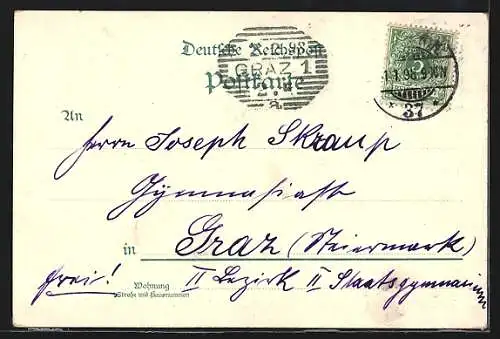 Deutsche Reichspost
Postkarte
GRAZ 1
1.1.98. 9-10V
* 37 *
An
Herrn Joseph Skraup
Gymnasiast
in Graz (Steiermark)
frei! II Bezirk II Staatsgymnasium
Wohnung
(Straße und Hausnummer)